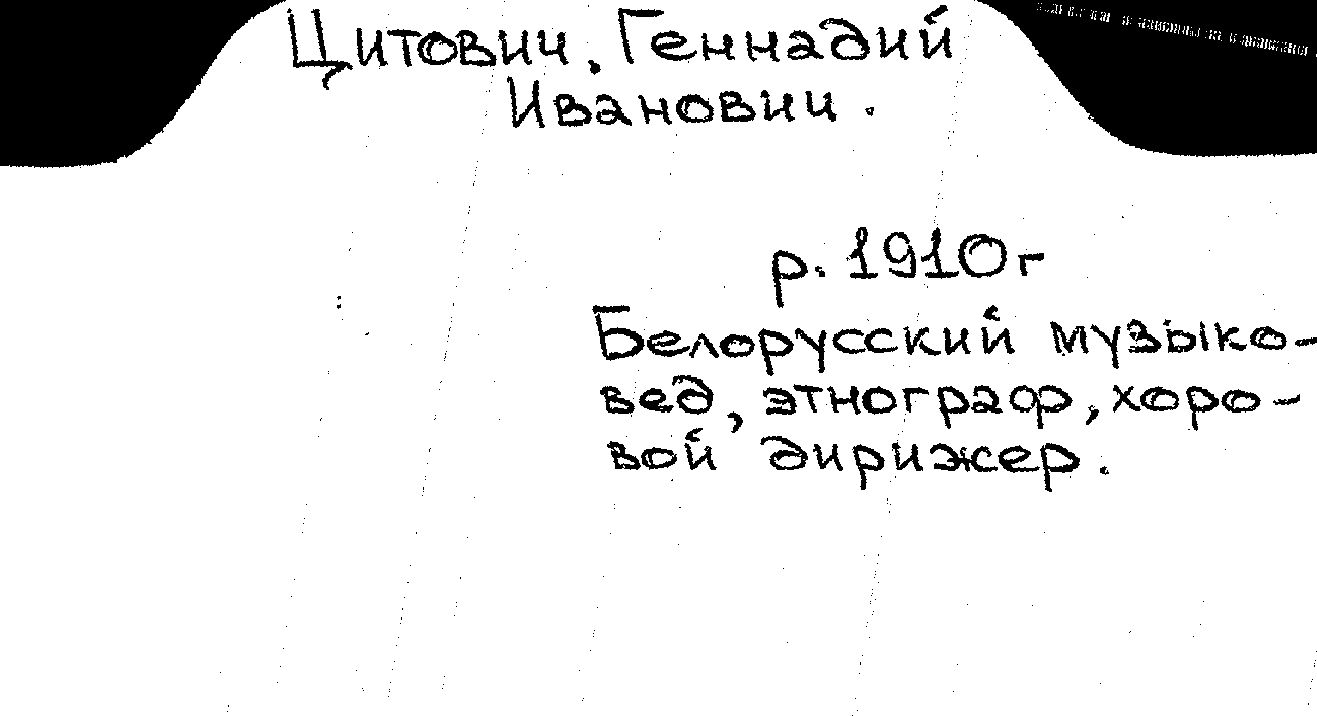 Цитович, Геннадий
Иванович.
р. 1910г
Белорусский музыко-
вед, этнограф, хоро-
вой дирижер.